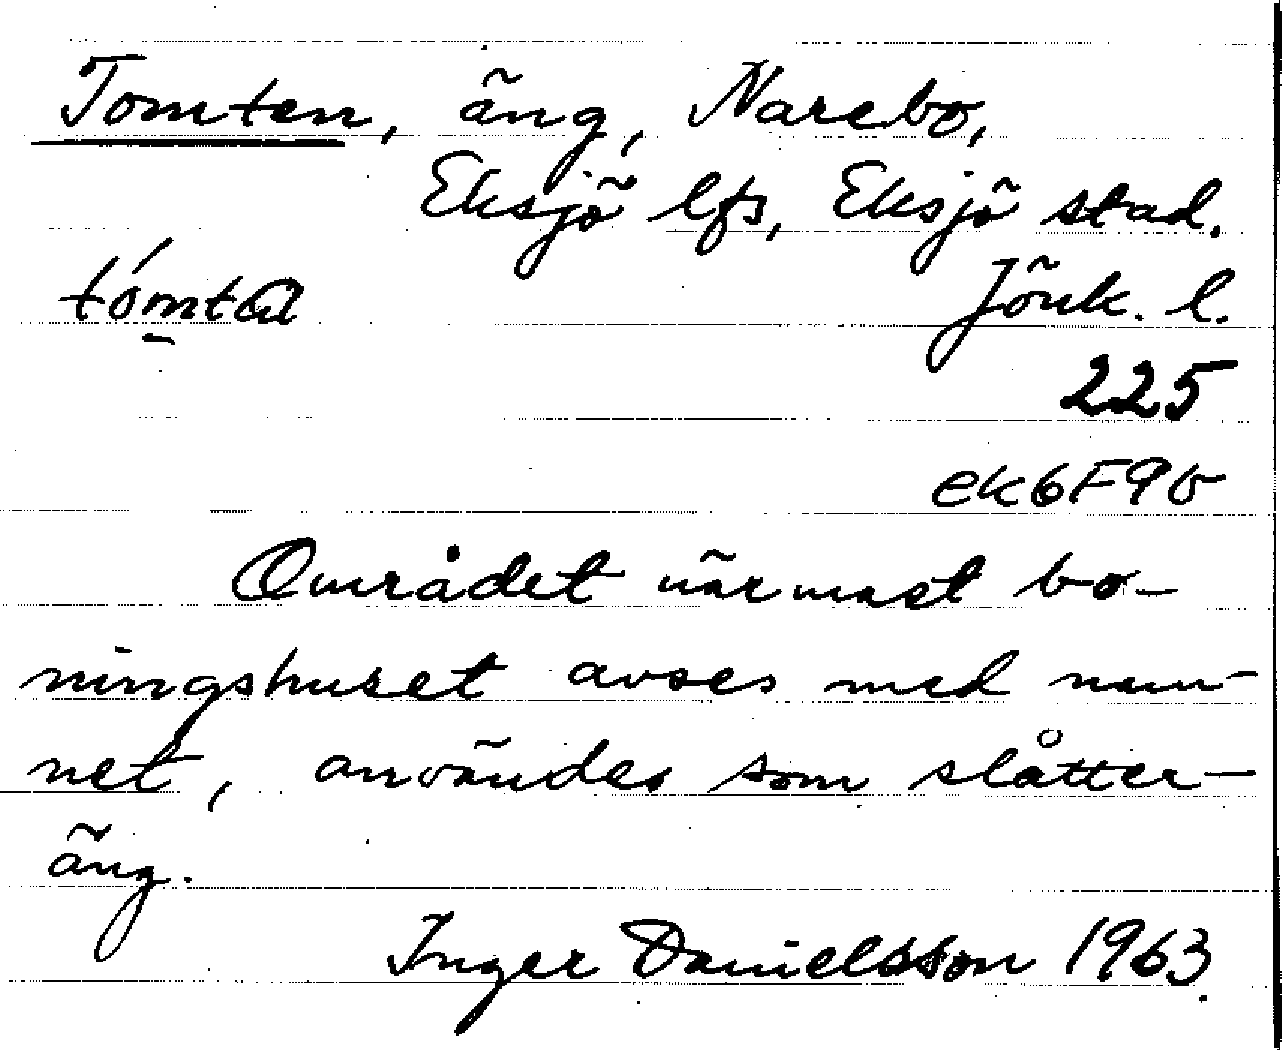 Tomten, äng, Narebo,
Eksjö lfs, Eksjö stad.
tómta Jönk. l.
225
ek6F9b
Området närmast bo-
ningshuset avses med nam-
net, användes som slåtter-
äng.
Inger Danielsson 1963.